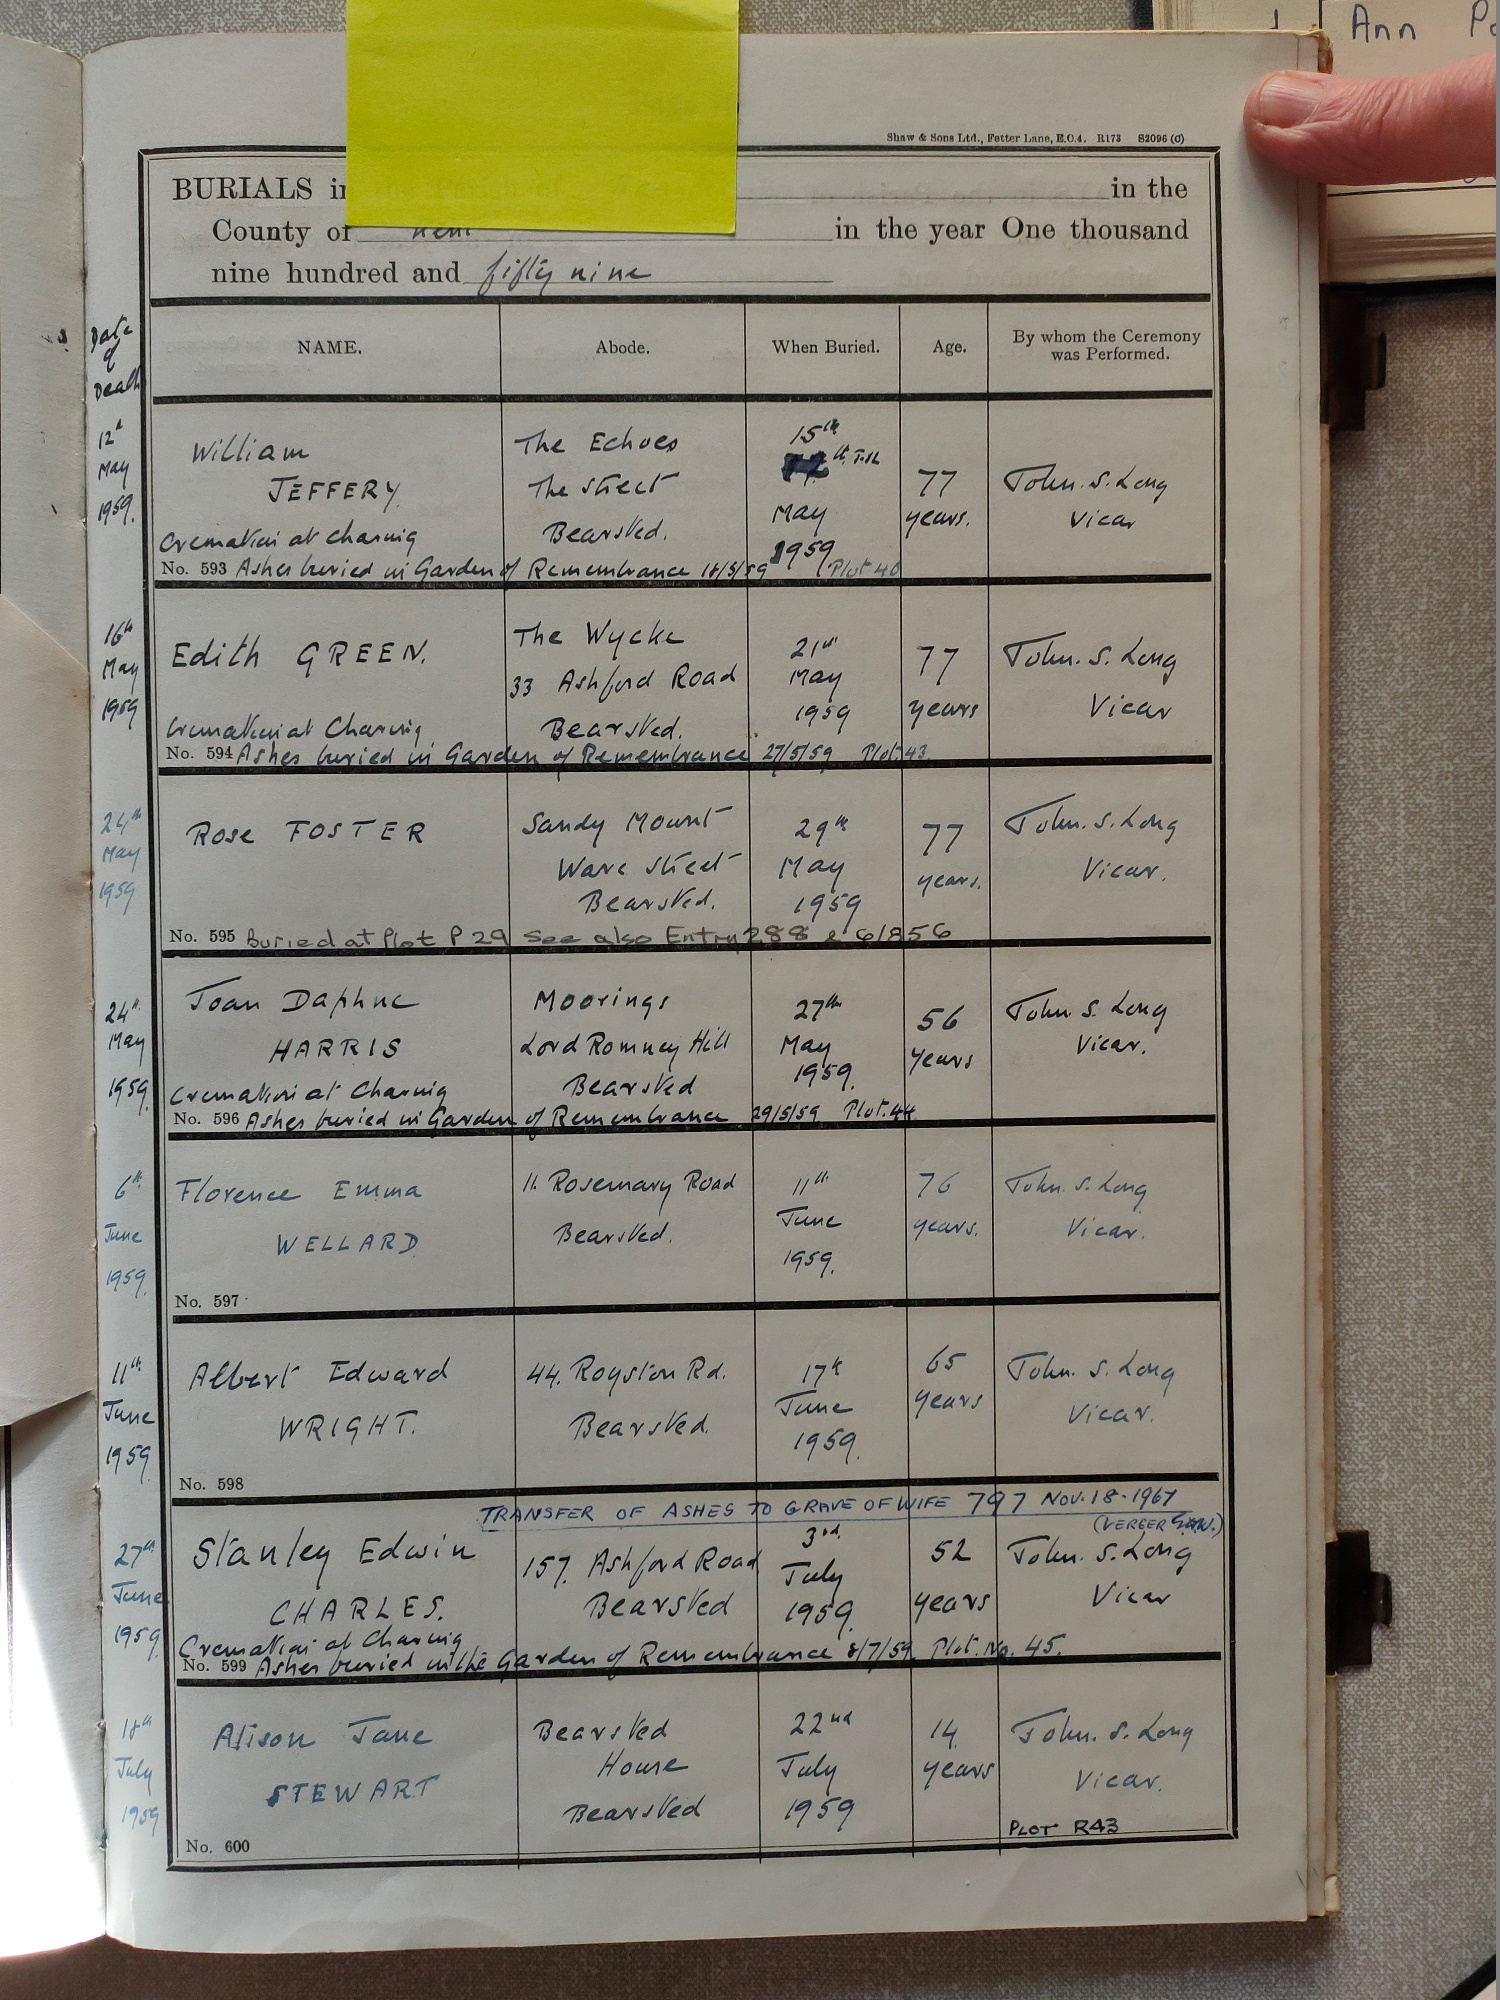 Ann
Shaw & Sons Ltd., Fetter Lane, E.C.4. R173 S2096 (C)
BURIALS in the
County of Kent in the year One thousand
nine hundred and fifty nine
Date
of
Death
NAME. Abode. When Buried. Age. By whom the Ceremony
was Performed.
12th
May
1959.
William
JEFFERY.
Cremation at Charing
No. 593 Ashes buried in Garden of Remembrance 18/5/59 Plot 40
The Echoes
The Street
Bearsted.
15th
May
1959
77
years.
John. S. Long
Vicar
16th
May
1959
Edith GREEN.
Cremation at Charing
No. 594 Ashes buried in Garden of Remembrance 27/5/59 Plot. 43.
The Wycke
33 Ashford Road
Bearsted.
21st
May
1959
77
years
John. S. Long
Vicar
24th
May
1959
Rose FOSTER
No. 595 Buried at Plot P 29 See also Entry 288 & 6/856
Sandy Mount
Ware Street
Bearsted.
29th
May
1959
77
years.
John. S. Long
Vicar.
24th
May
1959.
Joan Daphne
HARRIS
Cremation at Charing
No. 596 Ashes buried in Garden of Remembrance 29/5/59 Plot. 44
Moorings
Lord Romney Hill
Bearsted
27th
May
1959.
56
years
John S. Long
Vicar.
6th
June
1959.
Florence Emma
WELLARD
No. 597
11. Rosemary Road
Bearsted.
11th
June
1959.
76
years.
John. S. Long
Vicar.
11th
June
1959.
Albert Edward
WRIGHT.
No. 598
44. Royston Rd.
Bearsted.
17th
June
1959.
65
years
John. S. Long
Vicar.
TRANSFER OF ASHES TO GRAVE OF WIFE 797 NOV. 18 - 1967
(VERGER
27th
June
1959.
Stanley Edwin
CHARLES.
Cremation at Charing
No. 599 Ashes buried in the Garden of Remembrance 8/7/59. Plot. No. 45.
157. Ashford Road
Bearsted
3rd
July
1959.
52
years
John. S. Long
Vicar
18th
July
1959
Alison Jane
STEWART
No. 600
Bearsted
House
Bearsted
22nd
July
1959
14.
years
John. S. Long
Vicar.
PLOT R43